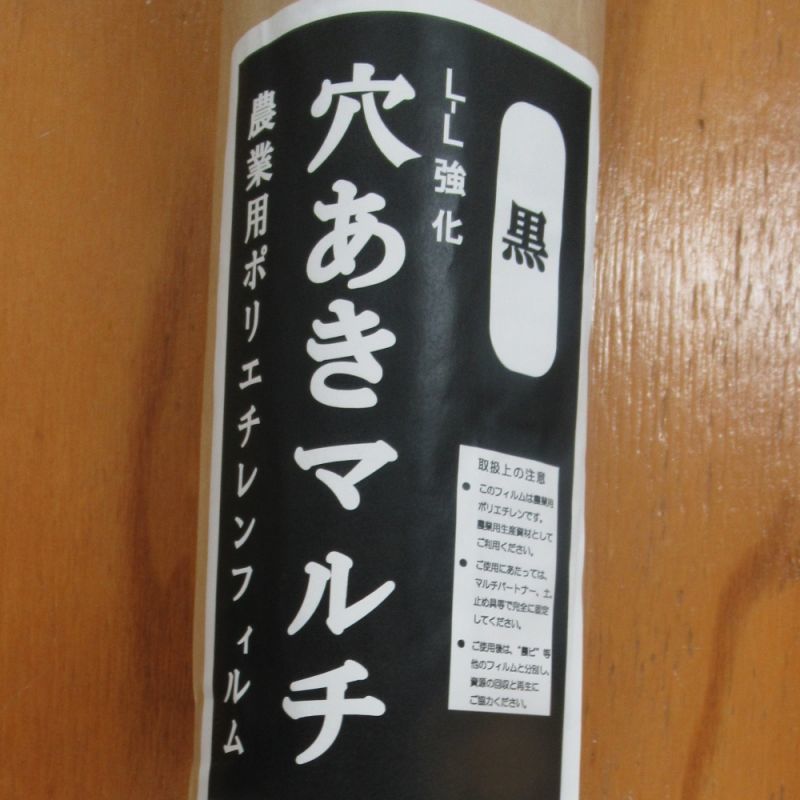 黒
L-L強化
穴あきマルチ
農業用ポリエチレンフィルム
取扱上の注意
● このフィルムは農業用
ポリエチレンです。
農業用生産資材として
ご利用ください。
● ご使用にあたっては、
マルチパートナー、土、
止め具等で完全に固定
してください。
● ご使用後は、“農ビ”等
他のフィルムと分別し、
資源の回収と再生に
ご協力ください。